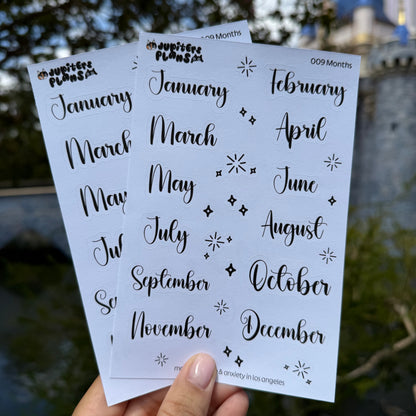 Jupiters
Plans
009 Months
January
February
March
April
May
June
July
August
September
October
November
December
& anxiety in los angeles
009 Months
Jupiters
Plans
January
March
May